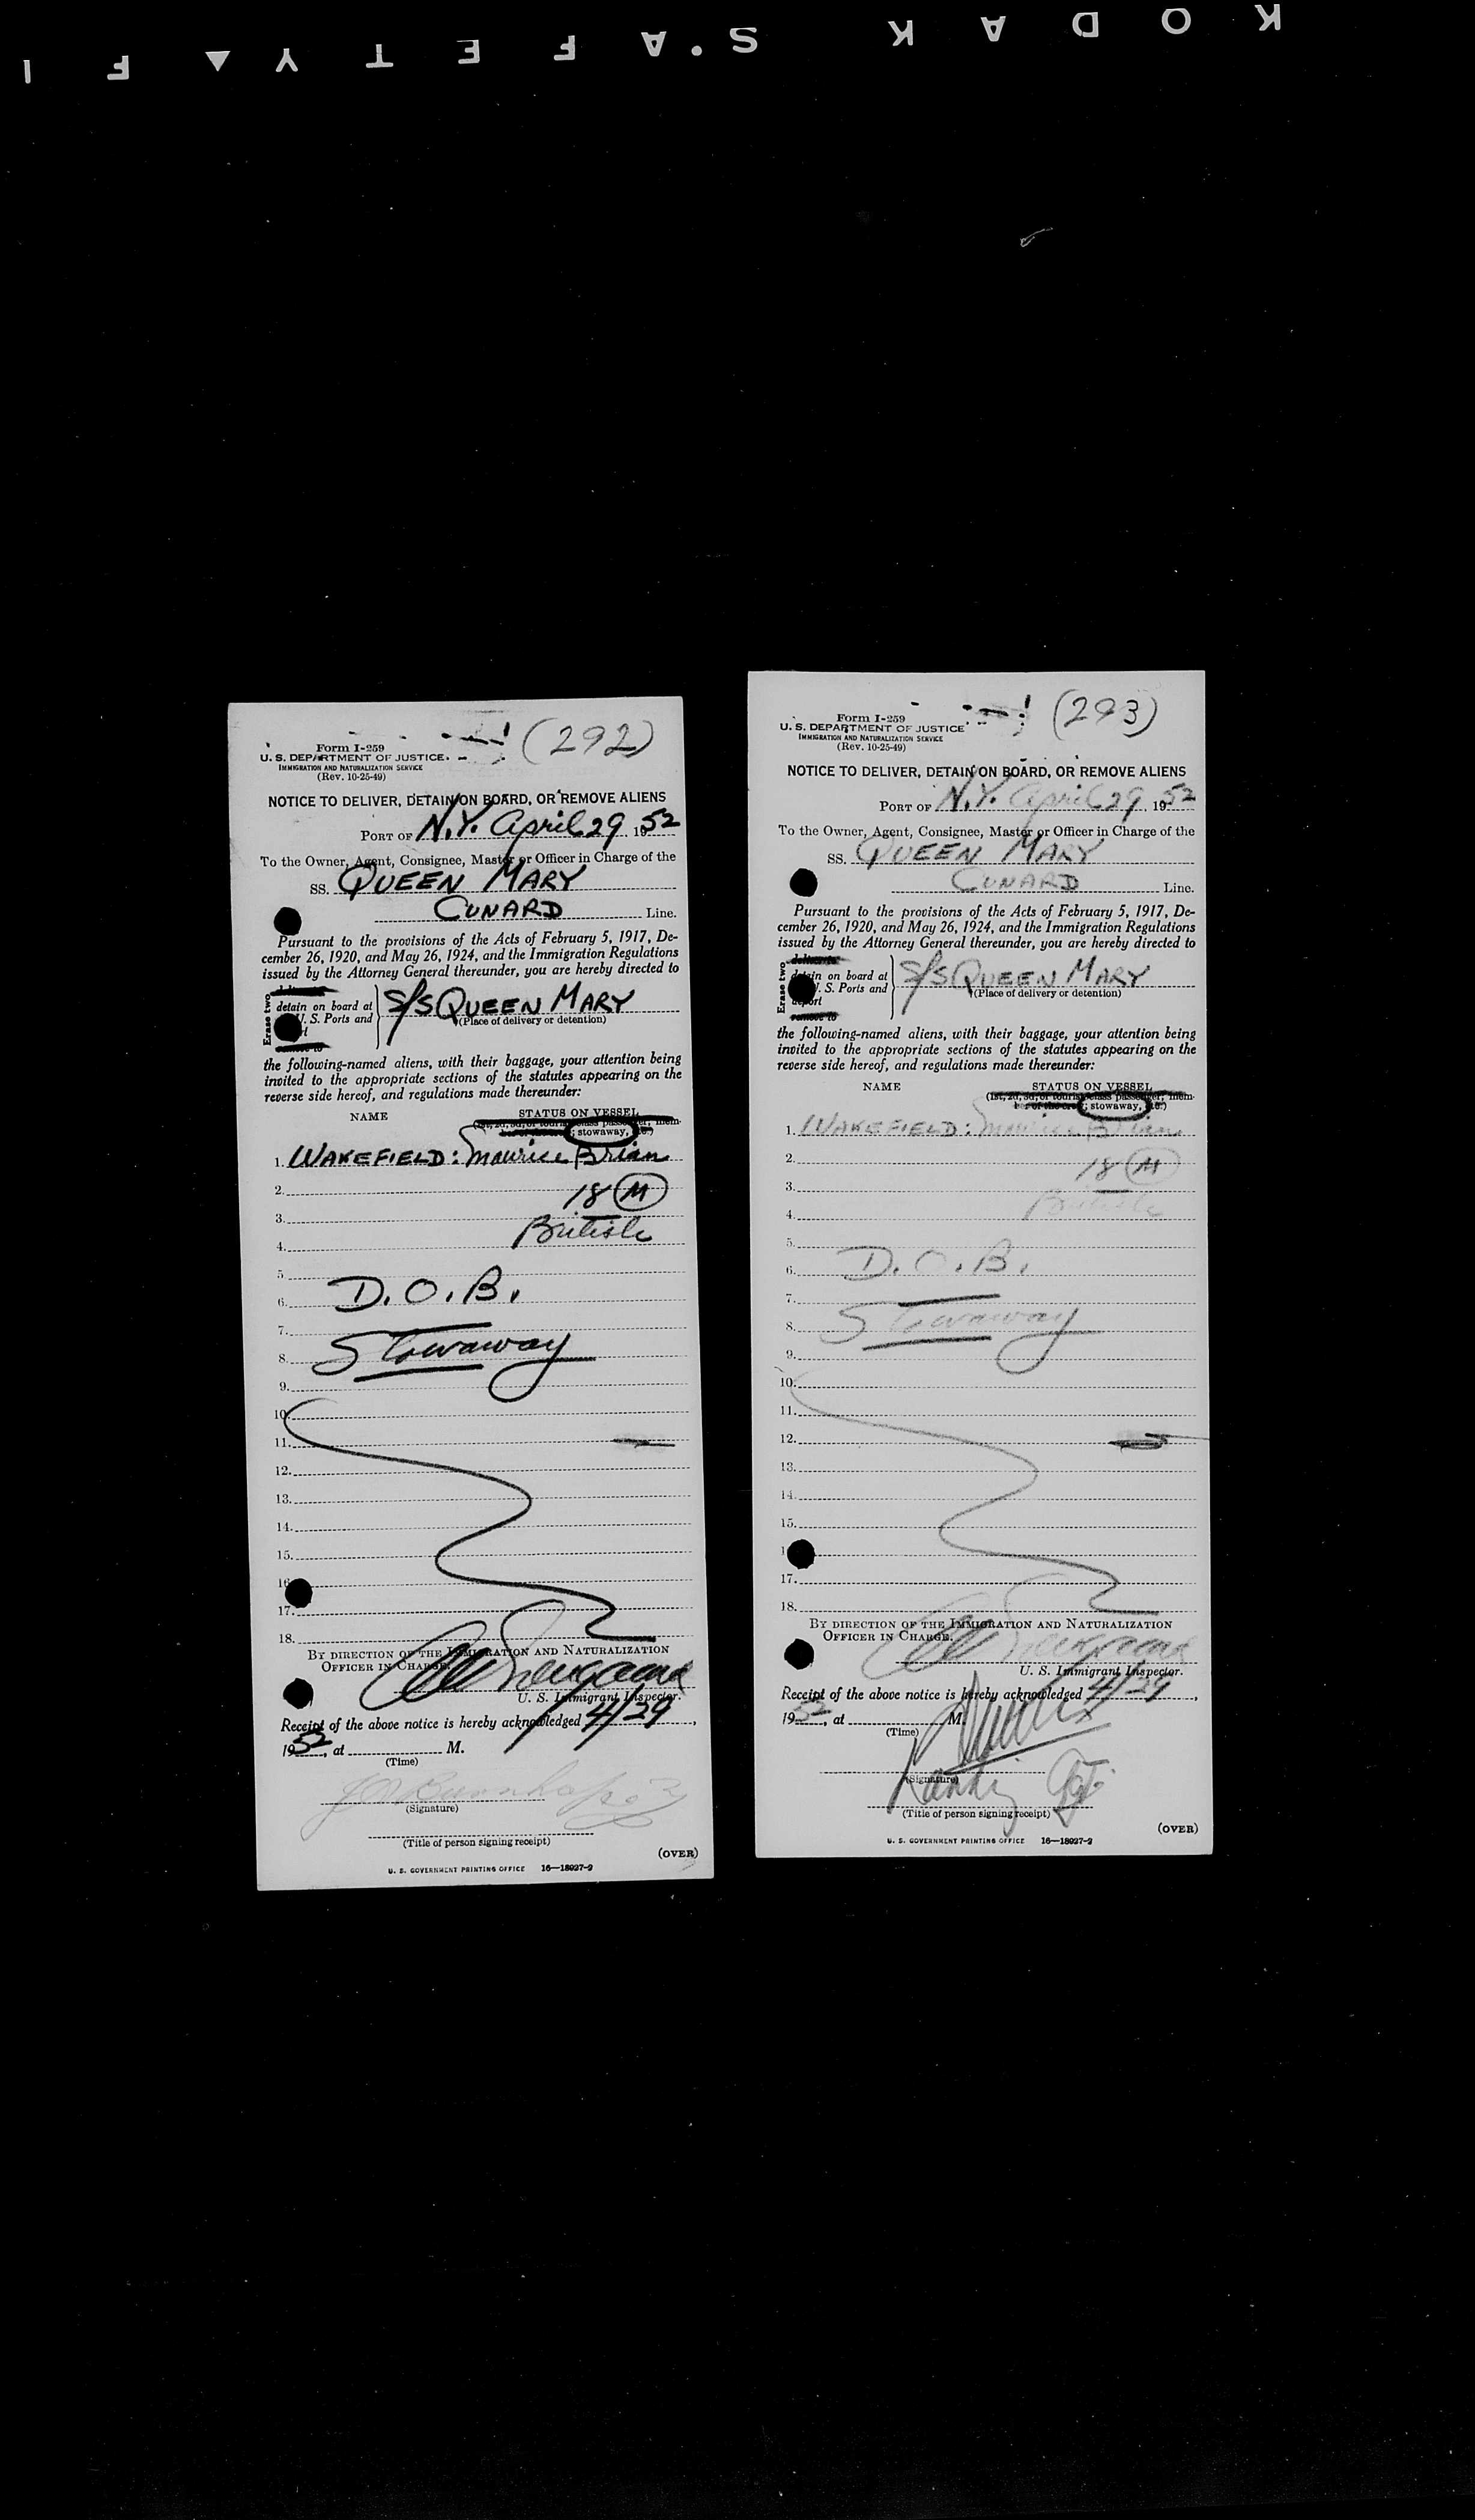 KODAK S.AFETY ▲ FI
(292)
Form I-259
U. S. DEPARTMENT OF JUSTICE
IMMIGRATION AND NATURALIZATION SERVICE
(Rev. 10-25-49)
NOTICE TO DELIVER, DETAIN ON BOARD, OR REMOVE ALIENS
PORT OF N.Y. April 29, 1952
To the Owner, Agent, Consignee, Master or Officer in Charge of the
SS. QUEEN MARY
CUNARD Line.
Pursuant to the provisions of the Acts of February 5, 1917, De-
cember 26, 1920, and May 26, 1924, and the Immigration Regulations
issued by the Attorney General thereunder, you are hereby directed to
Erase two
detain on board at
U. S. Ports and
S/S QUEEN MARY
(Place of delivery or detention)
remove to
the following-named aliens, with their baggage, your attention being
invited to the appropriate sections of the statutes appearing on the
reverse side hereof, and regulations made thereunder:
NAME STATUS ON VESSEL
(1st, 2d, 3d, or tourist class passenger; mem-
; stowaway, etc.)
1. WAKEFIELD: Maurice Brian
2. 18 (M)
3. British
4.
5.
6. D.O.B.
7.
8. Stowaway
9.
10.
11.
12.
13.
14.
15.
16.
17.
18.
BY DIRECTION OF THE IMMIGRATION AND NATURALIZATION
OFFICER IN CHARGE.
U. S. Immigrant Inspector.
Receipt of the above notice is hereby acknowledged 4/29,
1952, at M.
(Time)
(Signature)
(Title of person signing receipt)
(OVER)
U. S. GOVERNMENT PRINTING OFFICE 16—18027-2
(293)
Form I-259
U. S. DEPARTMENT OF JUSTICE
IMMIGRATION AND NATURALIZATION SERVICE
(Rev. 10-25-49)
NOTICE TO DELIVER, DETAIN ON BOARD, OR REMOVE ALIENS
PORT OF N.Y. April 29, 1952
To the Owner, Agent, Consignee, Master or Officer in Charge of the
SS. QUEEN MARY
CUNARD Line.
Pursuant to the provisions of the Acts of February 5, 1917, De-
cember 26, 1920, and May 26, 1924, and the Immigration Regulations
issued by the Attorney General thereunder, you are hereby directed to
Erase two
detain on board at
U. S. Ports and
deport
S/S QUEEN MARY
(Place of delivery or detention)
remove to
the following-named aliens, with their baggage, your attention being
invited to the appropriate sections of the statutes appearing on the
reverse side hereof, and regulations made thereunder:
NAME STATUS ON VESSEL
(1st, 2d, 3d, or tourist class passenger; mem-
ber of the crew; stowaway, etc.)
1. WAKEFIELD: Maurice Brian
2. 18 (M)
3.
4. British
5.
6. D.O.B.
7.
8. Stowaway
9.
10.
11.
12.
13.
14.
15.
17.
18.
BY DIRECTION OF THE IMMIGRATION AND NATURALIZATION
OFFICER IN CHARGE.
U. S. Immigrant Inspector.
Receipt of the above notice is hereby acknowledged 4/29,
1952, at M.
(Time)
(Signature)
(Title of person signing receipt)
(OVER)
U. S. GOVERNMENT PRINTING OFFICE 16—18027-2